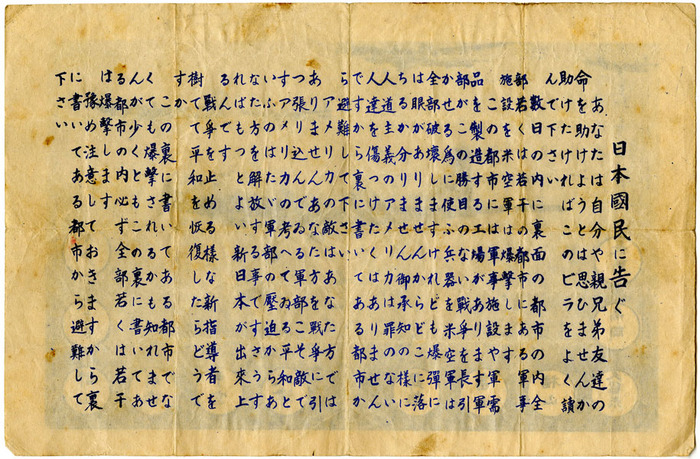 日本國民に告ぐ
あなたは自分や親兄弟友達の
命を助けようとは思ひませんか
助けたければこのビラをよく讀
んで下さい
数日の内に裏面の都市の内全
部若くは若干の都市にある軍事
施設を米空軍は爆撃します
この都市には軍事施設や軍需
品を製造する工場があります軍
部がこの勝目のない戦争を長引
かせる為に使ふ兵器を米空軍は
全部破壊しますけれども爆彈に
は眼がありませんからどこに落
ちるか分りません御承知の様に
人道主義のアメリカは罪のない
人達を傷つけたくはありません
ですから裏に書いてある都市か
ら避難して下さい
アメリカの敵はあなた方では
ありませんあなた方を戦争に引
つ張り込んでゐる軍部こそ敵で
すアメリカの考へてゐる平和と
いふのはたゞ軍部の壓迫からあ
なた方を解放する事ですさうす
ればもつとよい新日本が出來上
るんです
戦争を止める様な新指導者を
樹てて平和を恢復したらどうで
すか
この裏に書いてある都市でな
くても爆撃されるかも知れませ
んが少くともこの裏に書いてあ
る都市の内必ず全部若くは若干
は爆撃します
豫め注意しておきますから裏
に書いてある都市から避難して
下さい